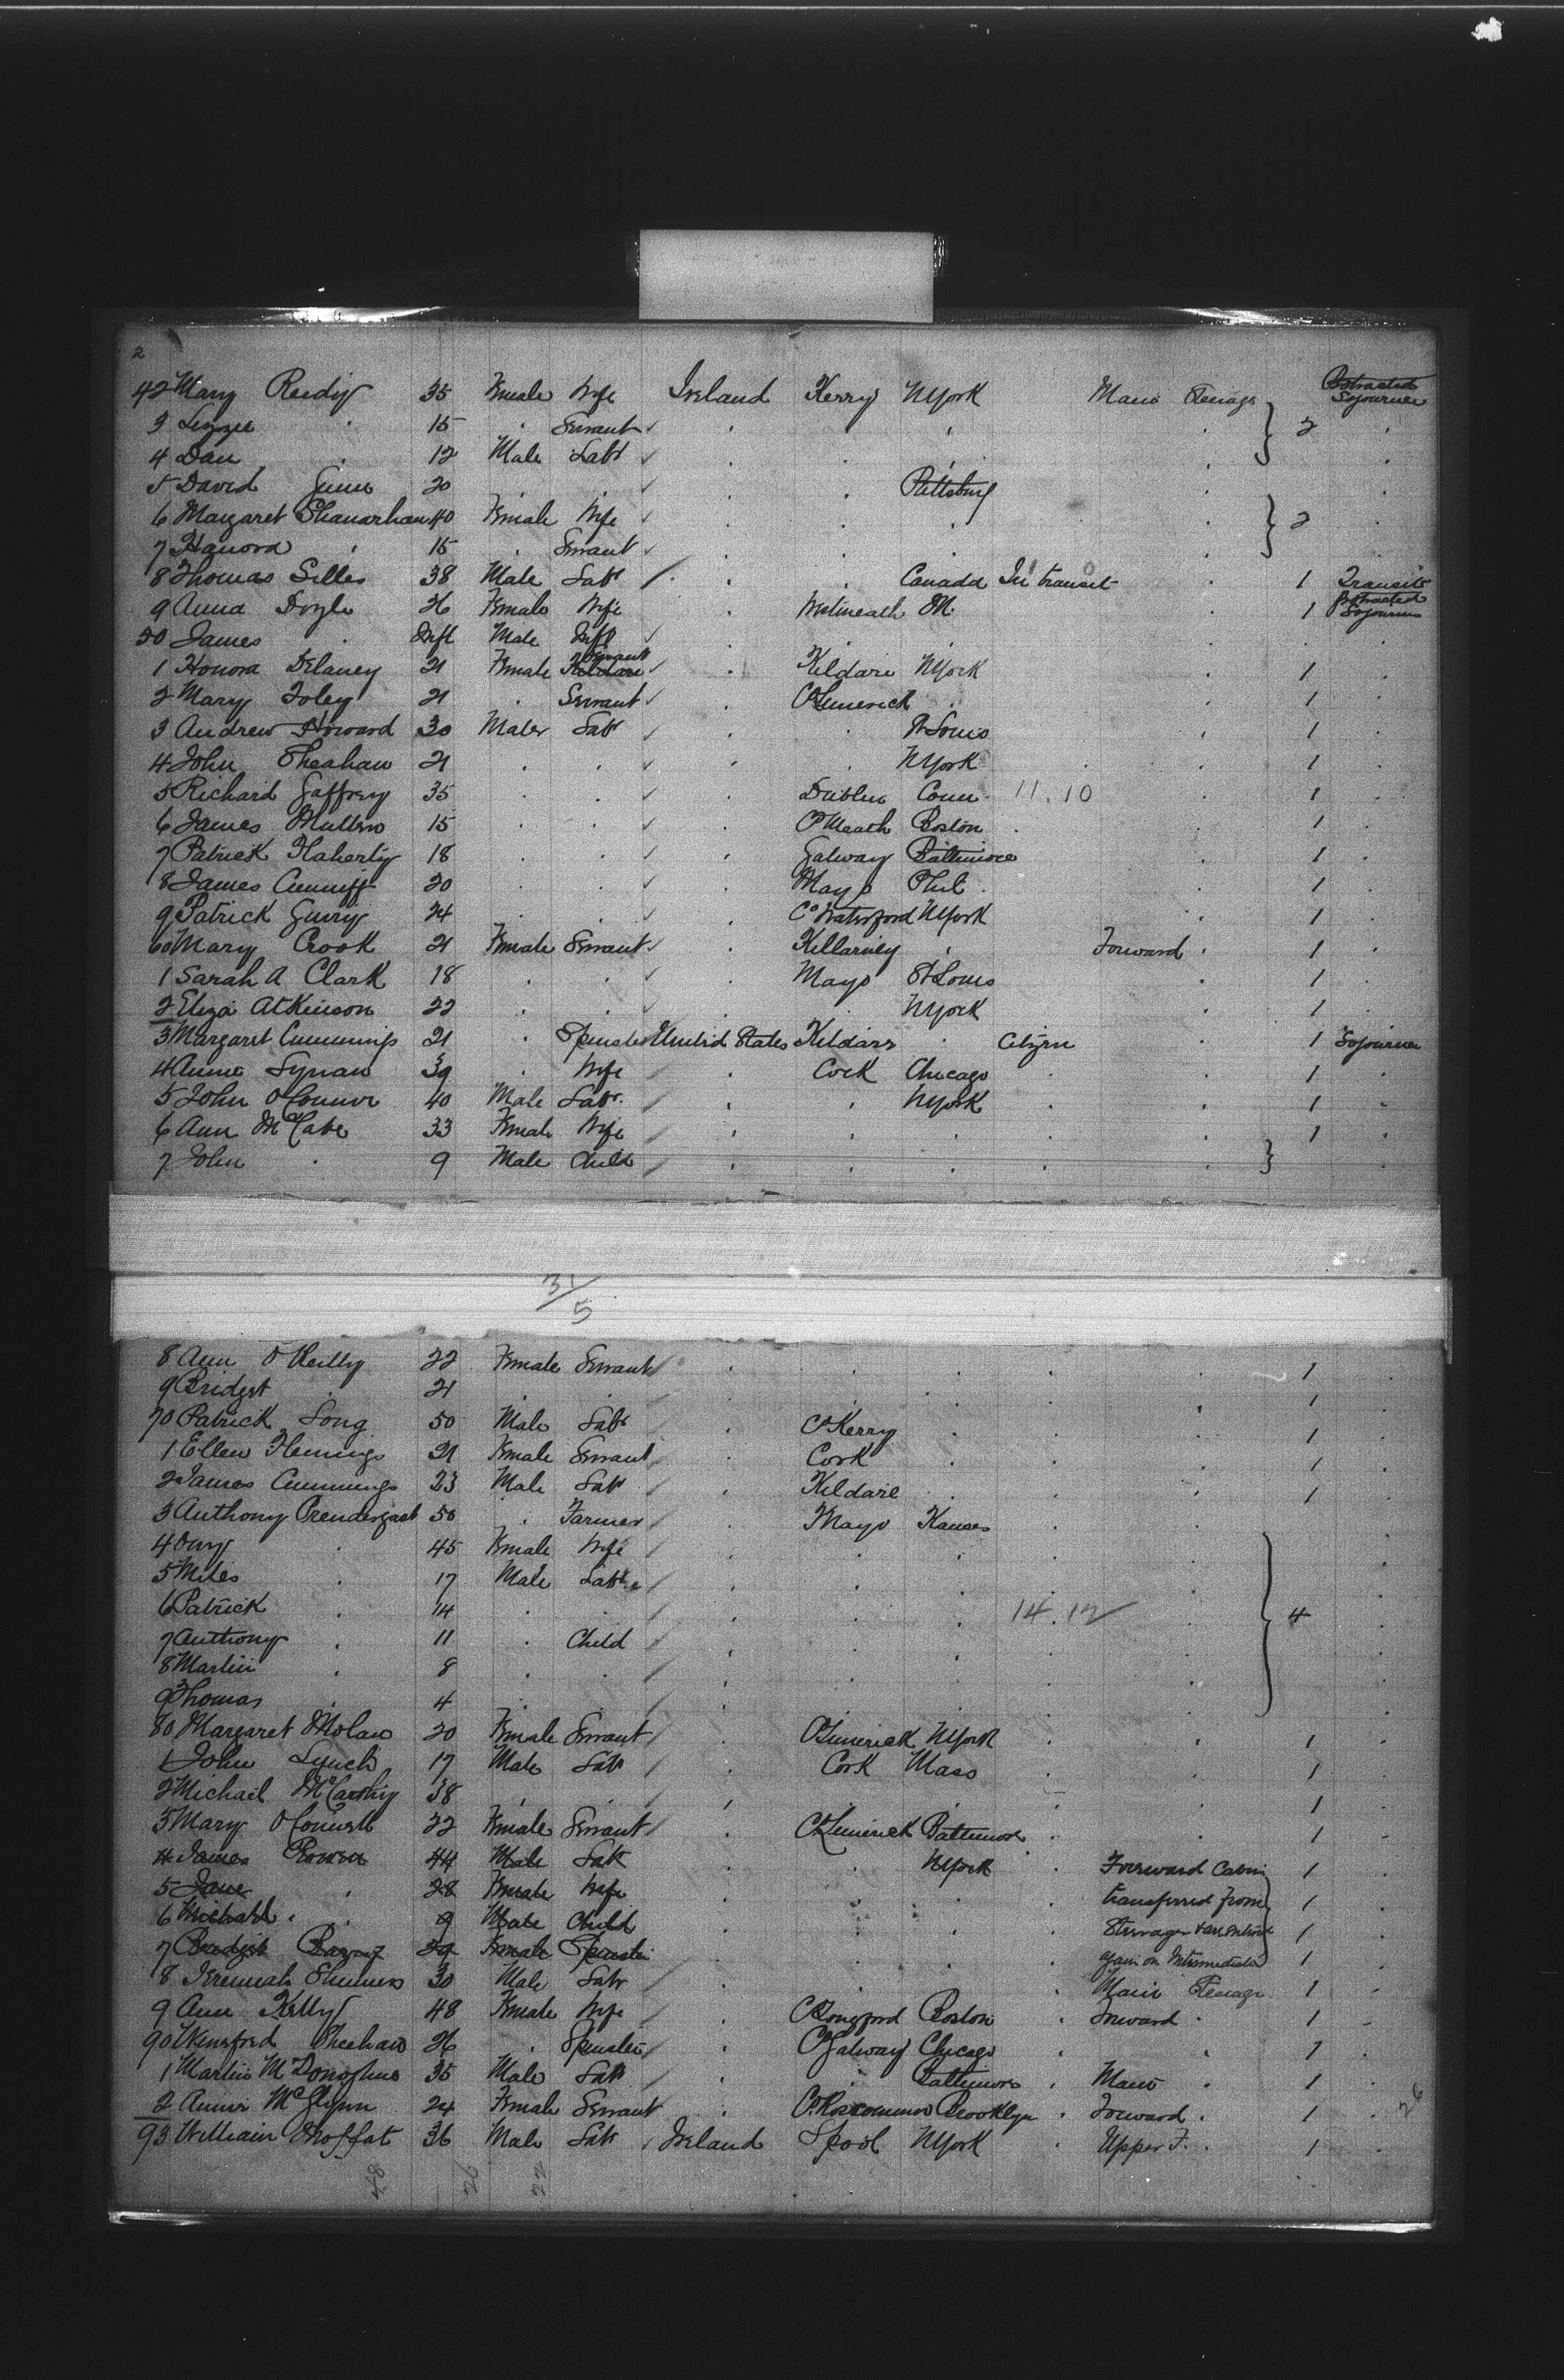 2
42 Mary Reidy 35 Female Wife Ireland Kerry NYork Main Steerage Protracted Sojourner
3 Lizzie " 15 " Servant ✓ " " " " 2 "
4 Dan " 12 Male Labr ✓ " " " " "
5 David Gunn 20 " " ✓ " " Pittsburg " "
6 Margaret Shanarhan 40 Female Wife ✓ " " " " 2 "
7 Hanora " 15 " Servant ✓ " " " " "
8 Thomas Silles 38 Male Labr / " " Canada In transit " 1 Transit
9 Anna Doyle 26 Female Wife " Westmeath " 1 Protracted Sojourner
50 James " Inft Male Inft ✓ " " " " "
1 Honora Delaney 21 Female Kildare Servant ✓ " Kildare NYork " 1 "
2 Mary Foley 21 " Servant ✓ " Co Limerick " " 1 "
3 Andrew Howard 30 Male Labr ✓ " " St Louis " 1 "
4 John Sheahan 21 " " ✓ " " NYork " 1 "
5 Richard Gaffrey 35 " " ✓ " Dublin Conn. 11.10 " 1 "
6 James Mullen 15 " " ✓ " Co Meath Boston " 1 "
7 Patrick Flaherty 18 " " ✓ " Galway Baltimore " 1 "
8 James Cunniff 20 " " ✓ " Mayo Phil " 1 "
9 Patrick Gurry 24 " " ✓ " Co Waterford NYork " 1 "
60 Mary Crook 21 Female Servant ✓ " Killarney " Forward " 1 "
1 Sarah A Clark 18 " " ✓ " Mayo St Louis " 1 "
2 Eliza Atkinson 22 " " ✓ " " NYork " 1 "
3 Margaret Cummings 21 " Spinster United States Kildare " Citizen " 1 Sojourner
4 Annie Synan 39 " Wife / " Cork Chicago " " 1 "
5 John O'Connor 40 Male Labr. / " " NYork " " 1 "
6 Ann McCabe 33 Female Wife / " " " " " 1 "
7 John " 9 Male Child / " " " " " "
31/5
8 Ann O'Reilly 22 Female Servant / " " " " " 1 "
9 Bridget " 21 " " / " " " " " 1 "
70 Patrick Long 50 Male Labr " Co Kerry " " " 1 "
1 Ellen Flemings 21 Female Servant / " Cork " " " 1 "
2 James Cummings 23 Male Labr / " Kildare " " " 1 "
3 Anthony Prendergast 50 " Farmer / " Mayo Kansas " "
4 " 45 Female Wife / " " " " "
5 Miles " 17 Male Labr / " " " " "
6 Patrick " 14 " " / " " " 14.12 " 4 "
7 Anthony " 11 " Child / " " " " "
8 Martin " 8 " " / " " " " "
9 Thomas " 4 " " / " " " " "
80 Margaret Molan 20 Female Servant / " Co Limerick NYork " " 1 "
1 John Lynch 17 Male Labr / " Cork Mass " " 1 "
2 Michael McCarthy 38 " " / " " " " " 1 "
3 Mary O'Connell 22 Female Servant / " Co Limerick Baltimore " " 1 "
4 James Rowen 44 Male Labr " " NYork " Forward Cabin 1 "
5 Jane " 28 Female Wife " " " " transferred from 1 "
6 Michael " 9 Male Child " " " " Steerage 1 "
7 Bridget 29 Female Spinster " " " " again on Intermediate 1 "
8 Jeremiah 30 Male Labr " " " " Main Steerage 1 "
9 Ann Kelly 48 Female Wife / " Co Longford Boston " Forward " 1 "
90 Winifred Sheehan 26 " Spinster / " Co Galway Chicago " " 1 "
1 Martin McDonoghue 35 Male Labr / " " Baltimore " Main " 1 "
2 Annie McGlynn 24 Female Servant " Co Roscommon Brooklyn " Forward " 1 "
93 William Moffat 36 Male Labr / Ireland Lpool NYork " Upper F. " 1 "
26
48 26 22